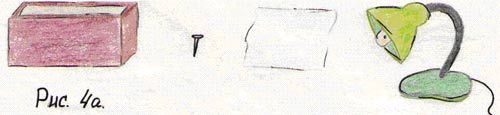 Рис. 4а.